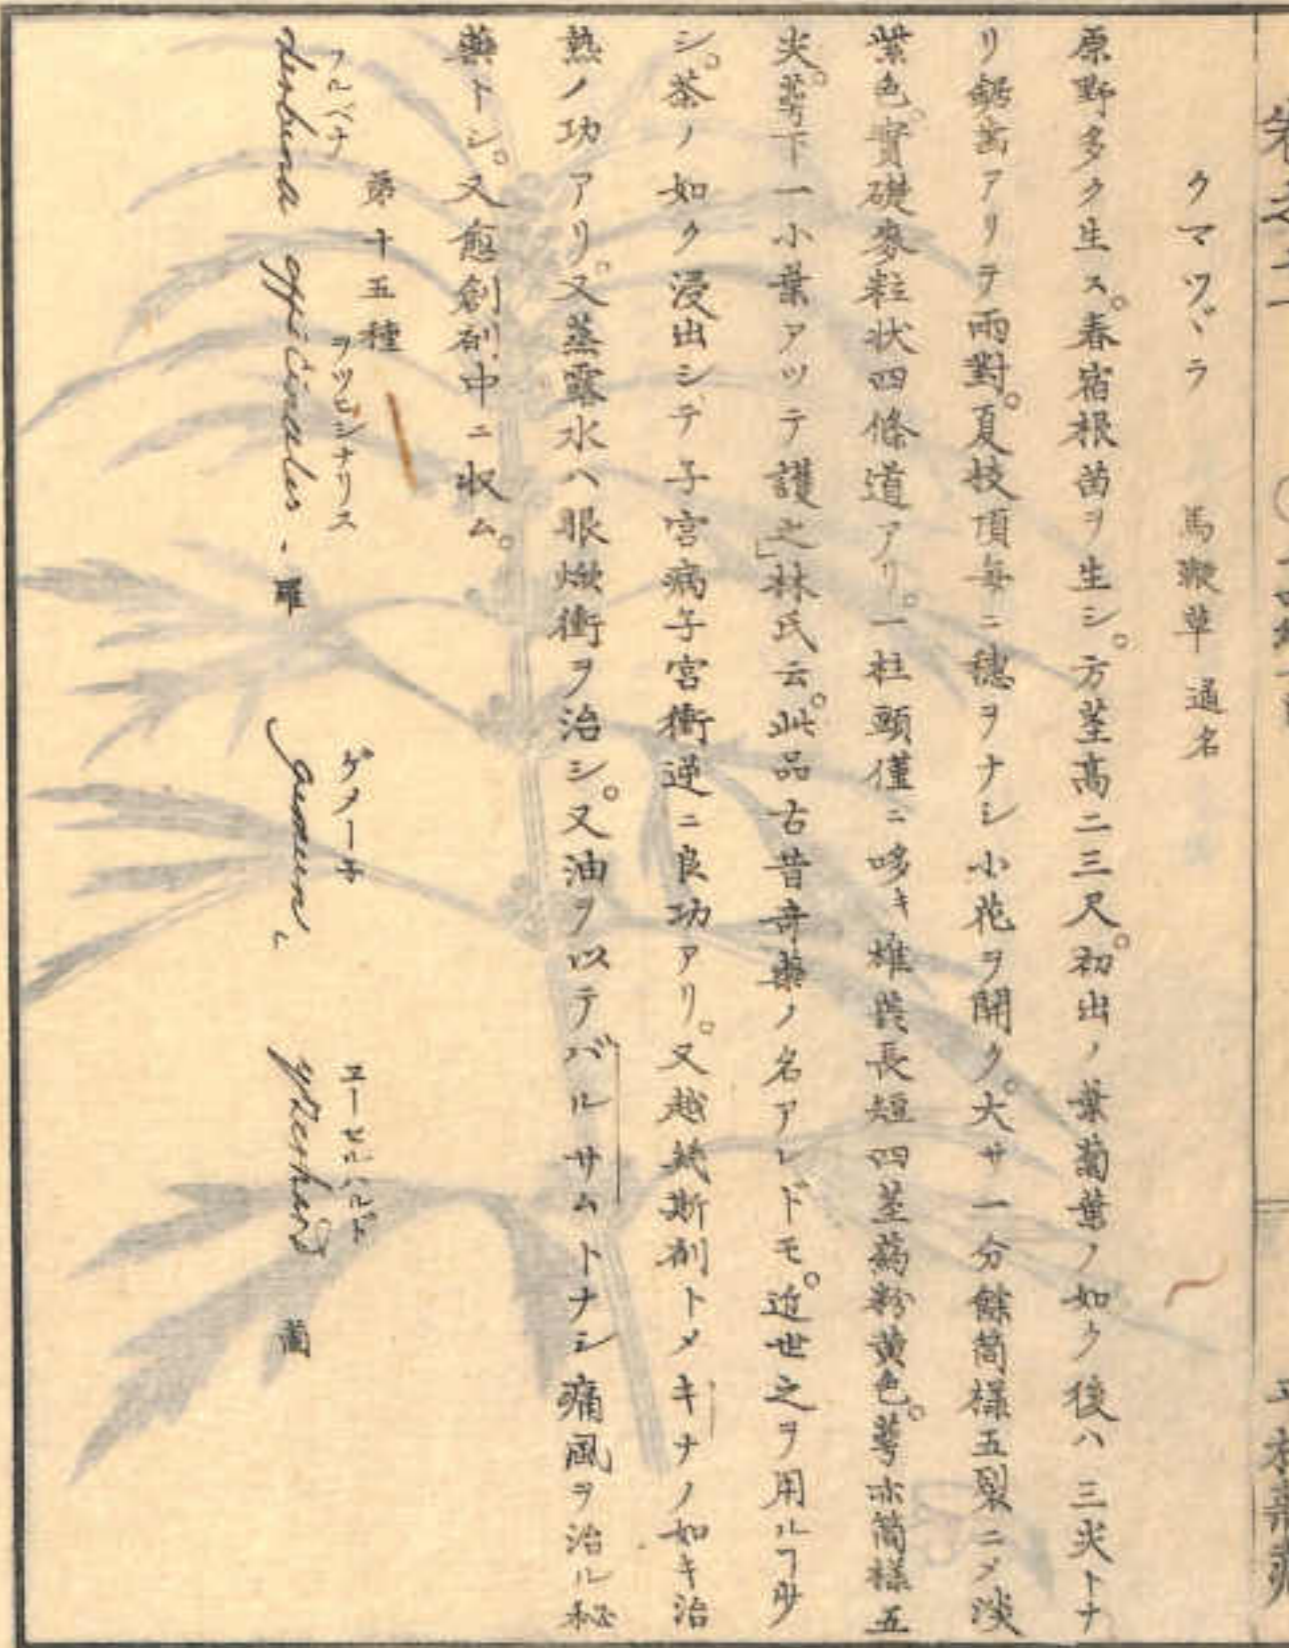 クマツヾラ 馬鞭草 通名
原野多ク生ス。春宿根苗ヲ生シ。方茎高二三尺。初出ノ葉菊葉ノ如ク後ハ三尖トナ
リ鋸歯アリテ両對。夏枝頂每ニ穗ヲナシ小花ヲ開ク。大サ一分餘筒樣五裂ニメ淡
紫色。實礎麥粒状四條道アリ。一柱頭僅ニ哆キ雄蕋長短四茎葯粉黄色。萼亦筒樣五
尖。萼下一小葉アツテ護之」林氏云。此品古昔奇藥ノ名アレドモ。近世之ヲ用ルヿ少
シ。茶ノ如ク浸出シテ子宮病子宮衝逆ニ良功アリ。又越幾斯剤トメキナノ如キ治
熱ノ功アリ。又蒸露水ハ眼焮衝ヲ治シ。又油ヲ以テバルサムトナシ痛風ヲ治ル秘
藥トシ。又愈創剤中ニ收ム。
第十五種
フルベナ ヲツヒシナリス ゲメーネ エーセルハルド
Verbena officinales. 羅 gemeen, yzerhard 蘭